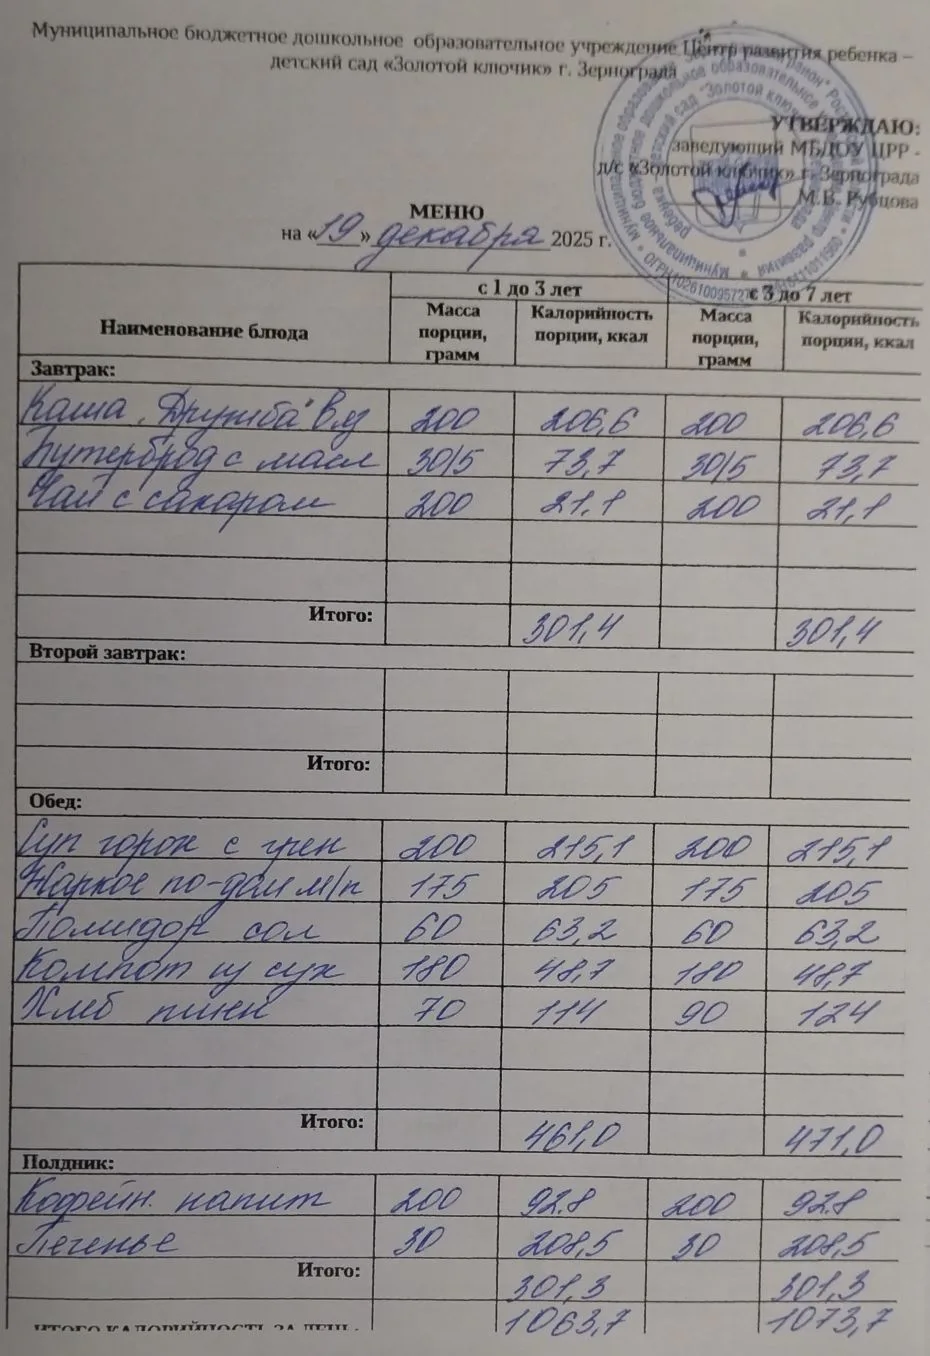 Муниципальное бюджетное дошкольное образовательное учреждение Центр развития ребенка –
детский сад «Золотой ключик» г. Зернограда
УТВЕРЖДАЮ:
заведующий МБДОУ ЦРР -
д/с «Золотой ключик» г. Зернограда
М.В. Рубцова
МЕНЮ
на «19» декабря 2025 г.
Наименование блюда с 1 до 3 лет с 3 до 7 лет
Масса порции, грамм Калорийность порции, ккал Масса порции, грамм Калорийность порции, ккал
Завтрак:
Каша "Дружба" вяз 200 206,6 200 206,6
Бутерброд с масл 30/5 73,7 30/5 73,7
Чай с сахаром 200 21,1 200 21,1
Итого: 301,4 301,4
Второй завтрак:
Итого:
Обед:
Суп горох с грен 200 215,1 200 215,1
Жаркое по-дом м/п 175 205 175 205
Помидор сол 60 63,2 60 63,2
Компот из сух 180 48,7 180 48,7
Хлеб пшен 70 114 90 124
Итого: 461,0 471,0
Полдник:
Кофейн. напит 200 92.8 200 92.8
Печенье 30 208,5 30 208,5
Итого: 301,3 301,3
ИТОГО КАЛОРИЙНОСТЬ ЗА ДЕНЬ: 1063,7 1073,7